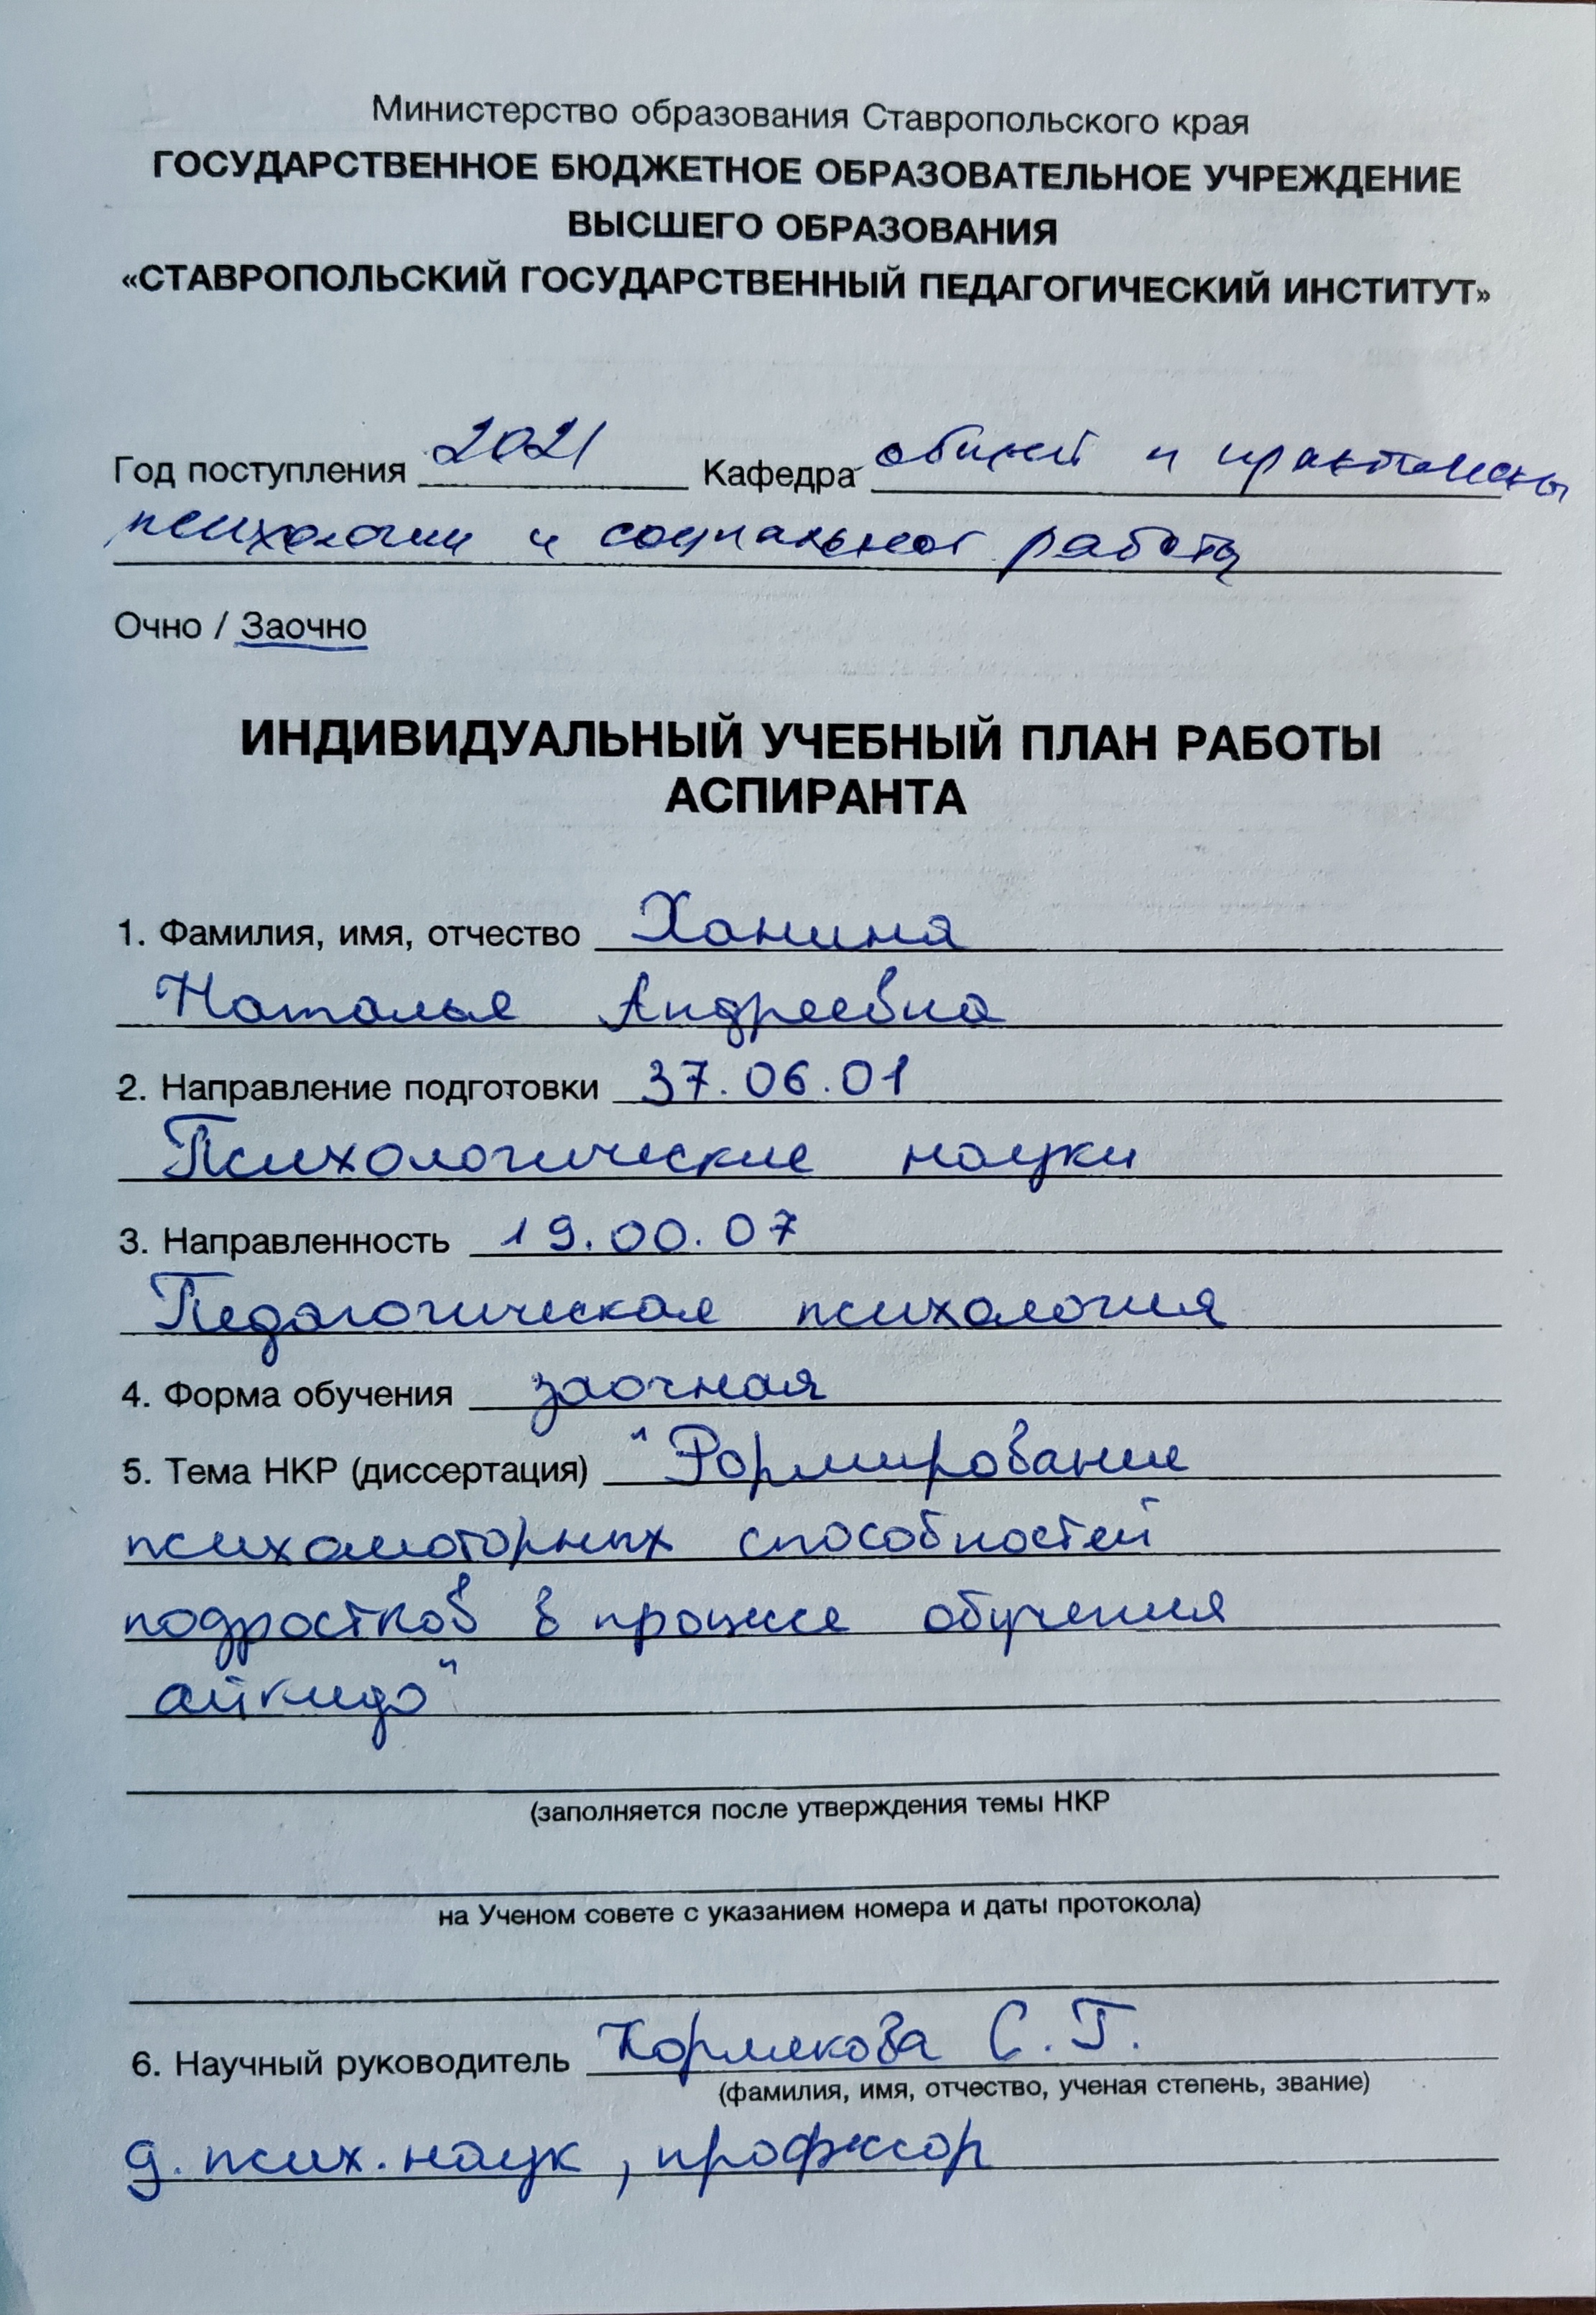 Министерство образования Ставропольского края
ГОСУДАРСТВЕННОЕ БЮДЖЕТНОЕ ОБРАЗОВАТЕЛЬНОЕ УЧРЕЖДЕНИЕ
ВЫСШЕГО ОБРАЗОВАНИЯ
«СТАВРОПОЛЬСКИЙ ГОСУДАРСТВЕННЫЙ ПЕДАГОГИЧЕСКИЙ ИНСТИТУТ»
Год поступления 2021 Кафедра общей и
психологии и социальной работы
Очно / Заочно
ИНДИВИДУАЛЬНЫЙ УЧЕБНЫЙ ПЛАН РАБОТЫ
АСПИРАНТА
1. Фамилия, имя, отчество Ханина
Наталья Андреевна
2. Направление подготовки 37.06.01
Психологические науки
3. Направленность 19.00.07
Педагогическая психология
4. Форма обучения заочная
5. Тема НКР (диссертация) "Формирование
психомоторных способностей
подростков в процессе обучения
айкидо"
(заполняется после утверждения темы НКР
на Ученом совете с указанием номера и даты протокола)
6. Научный руководитель С. Г.
(фамилия, имя, отчество, ученая степень, звание)
д. псих. наук, профессор